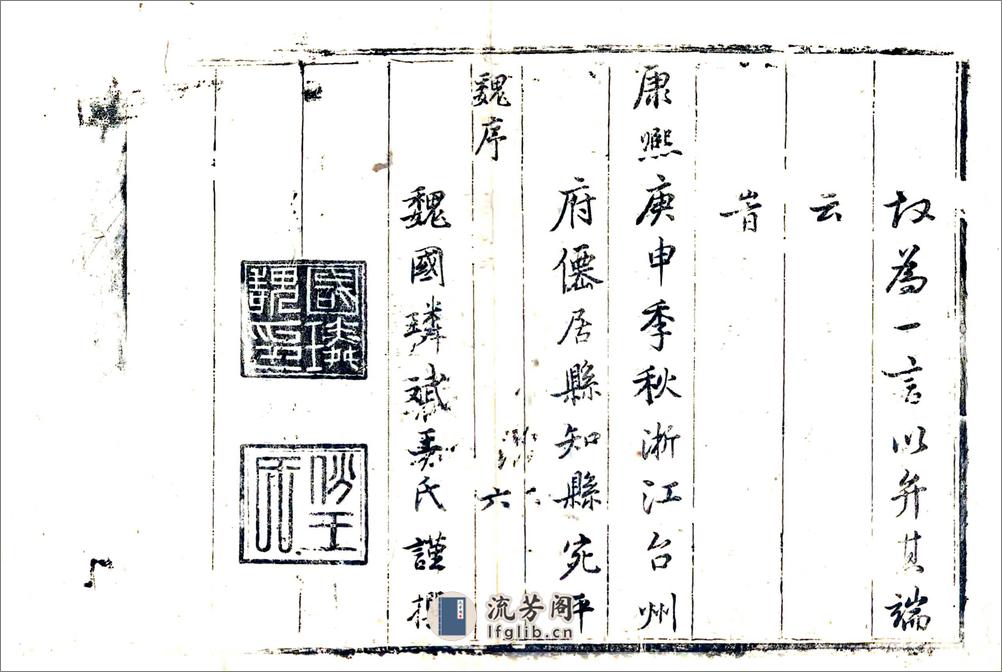 故為一言以弁其端
云
旹
康熙庚申季秋浙江台州
府僊居縣知縣宛平
魏序 六
魏國璘氏謹撰
流芳阁
lfglib.cn